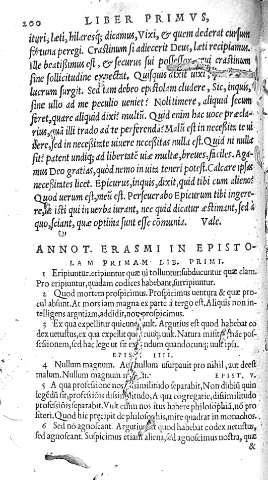 200 LIBER PRIMVS,
ituri, læti, hilaresq; dicamus, Vixi, & quem dederat cursum
fortuna peregi. Crastinum si adiecerit Deus, læti recipiamus.
Ille beatissimus est, & securus sui possessor, qui crastinum
sine sollicitudine expectat. Quisquis dixit vixi, quotidie ad
lucrum surgit. Sed iam debeo epistolam cludere, Sic, inquis,
sine ullo ad me peculio veniet? Noli timere, aliquid secum
feret, quare aliquid dixi? multū. Quid enim hac uoce præcla
rius, quā illi trado ad te perferendā? Malū est in necessitate ui
uere, sed in necessitate uiuere necessitas nulla est. Quid ni nulla
sit? patent undiq; ad libertatē uiæ multæ, breues, faciles. Aga
mus Deo gratias, quòd nemo in uita teneri potest. Calcare ipsas
necessitates licet. Epicurus, inquis, dixit, quid tibi cum alieno?
Quod uerum est, meū est. Perseuerabo Epicurum tibi ingere-
re, ut isti qui in uerba iurant, nec quid dicatur æstimant, sed à
quo, sciant, quæ optima sunt esse cōmunia. Vale.
ANNOT. ERASMI IN EPISTO-
LAM PRIMAM LIB. PRIMI.
1 Eripiuntur. eripiuntur quæ ui tolluntur: subducuntur quæ clam.
Pro eripiuntur, quadam codices habebant, surripiuntur.
2 Quod mortem prospicimus. Prospicimus uentura & quæ pro-
cul absunt. At mors iam magna ex parte à tergo est. Aliquis non in-
telligens argutiam, addidit, non prospicimus.
3 Ex qua expellit
dex uetustus, ex qua expellit Natura misit
sessionem, sed hac lege ut sit ndum quandocunq; uult ipsa.
EPIST. IIII.
4 Nullum magnum. usurpauit pro nihil, aut deest
malum. Nullum malum EPIST. V.
5 A qua professione nos dissimilitudo separabit, Non dubiū quin
legēdū sit, professiōis dissimilitudo, A qua congregatie, dissimilitudo
professiōis separabit. Vult enim nos itus habere philosophiā, nō pro
fiteri. Quod hic præcipit de philosophis, mire quadrat in monachos.
6 Sed nō agnoscat. Argutius quod habebat codex uetustus,
sed agnoscant. Suspicimus etiam aliena, sed agnoscimus nostra, quæ
&